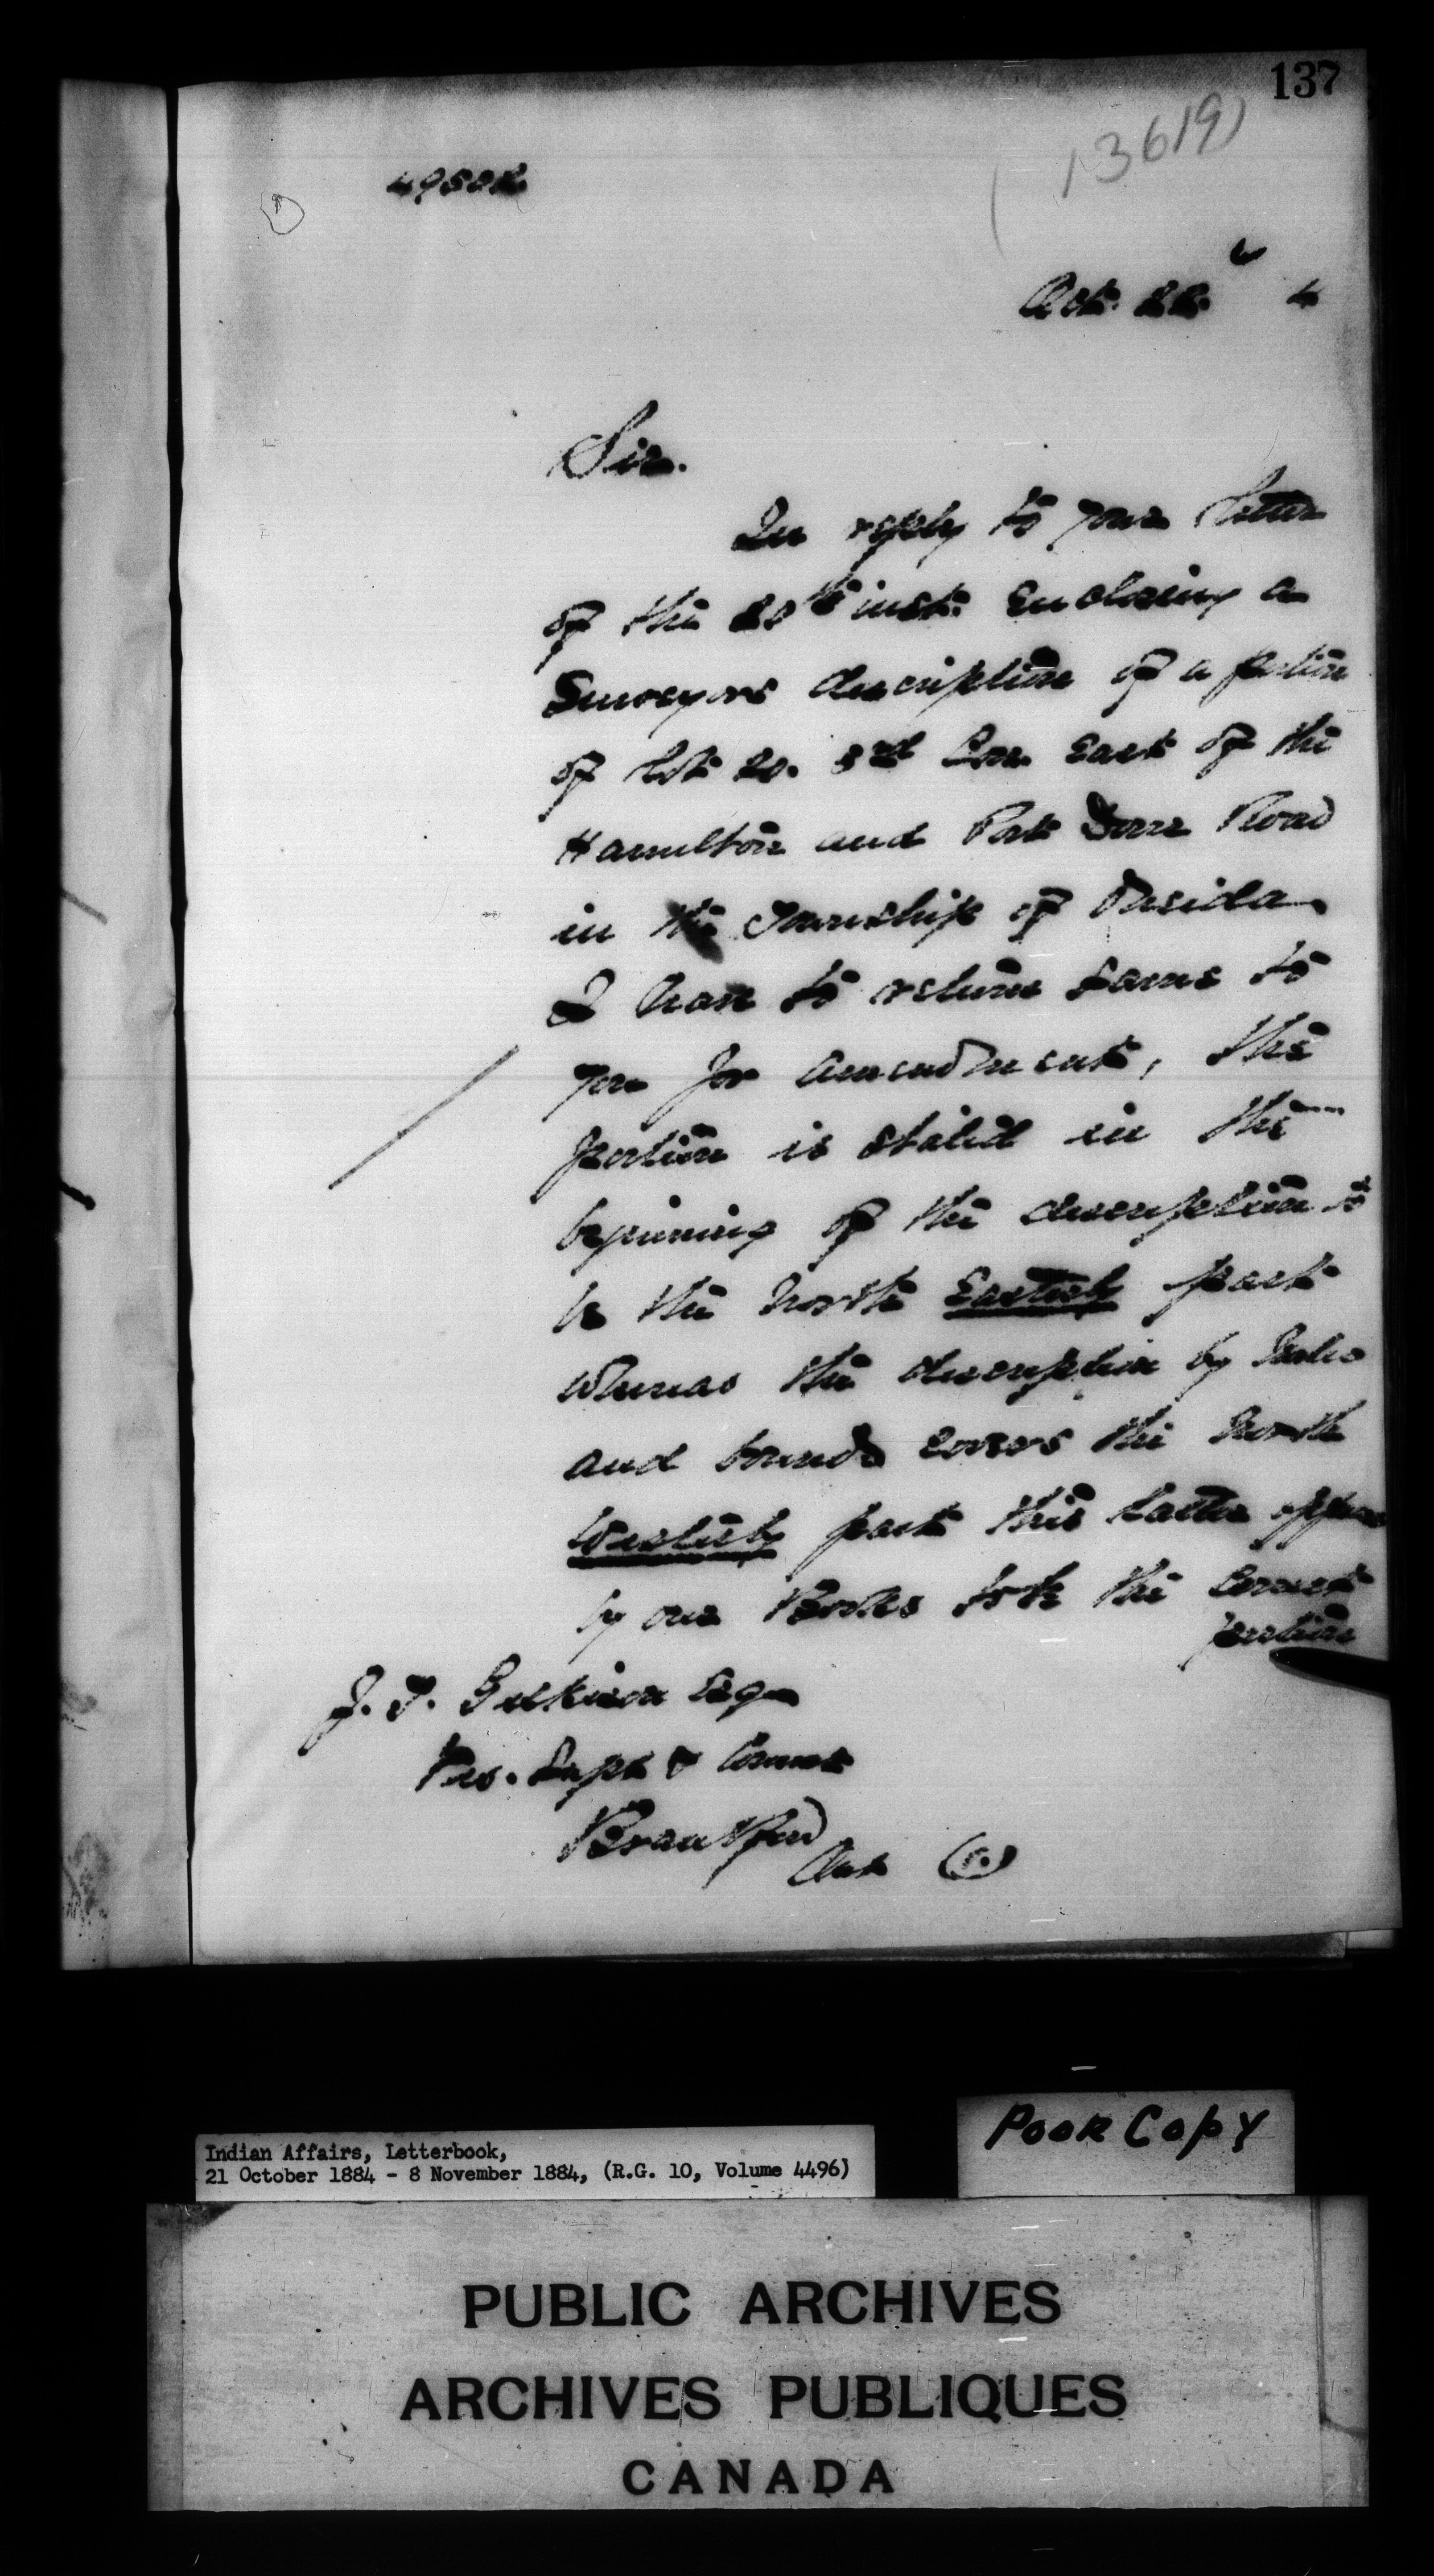 137
13619
Oct. 22 4
Sir.
In reply to your letter
of the 20th inst. enclosing a
Surveyors description of a portion
of lot 20. 3rd Con. East of the
Hamilton and Port Dover Road
in the Township of Oneida
I have to return same to
you for amendment, the
portion is stated in the
beginning of the description to
be the North Easterly part
whereas the description by metes
and bounds covers the North
Westerly part this latter appears
by our Books to be the correct
portion
J. T. Gilkison Esq
Vis. Supt & Commr
Brantford
Ont
Poor Copy
Indian Affairs, Letterbook,
21 October 1884 - 8 November 1884, (R.G. 10, Volume 4496)
PUBLIC ARCHIVES
ARCHIVES PUBLIQUES
CANADA